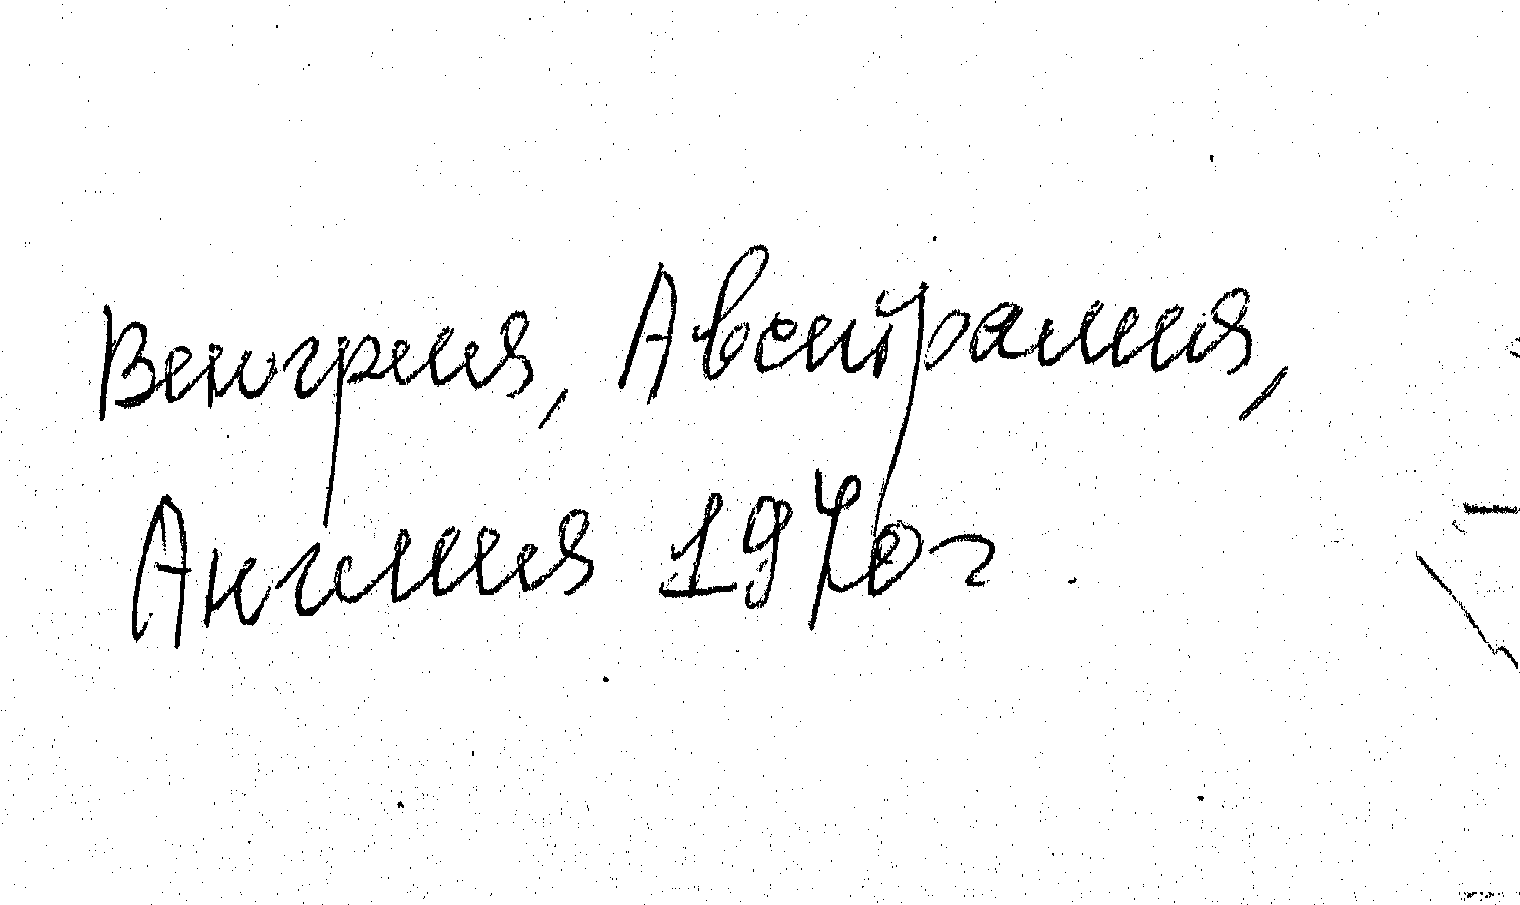 Венгрия, Австралия,
Англия 1970г